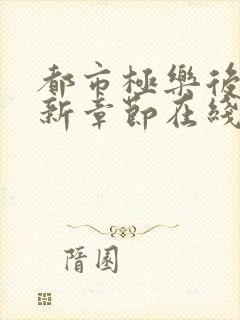 都市極樂後
新章節在綫
隋園